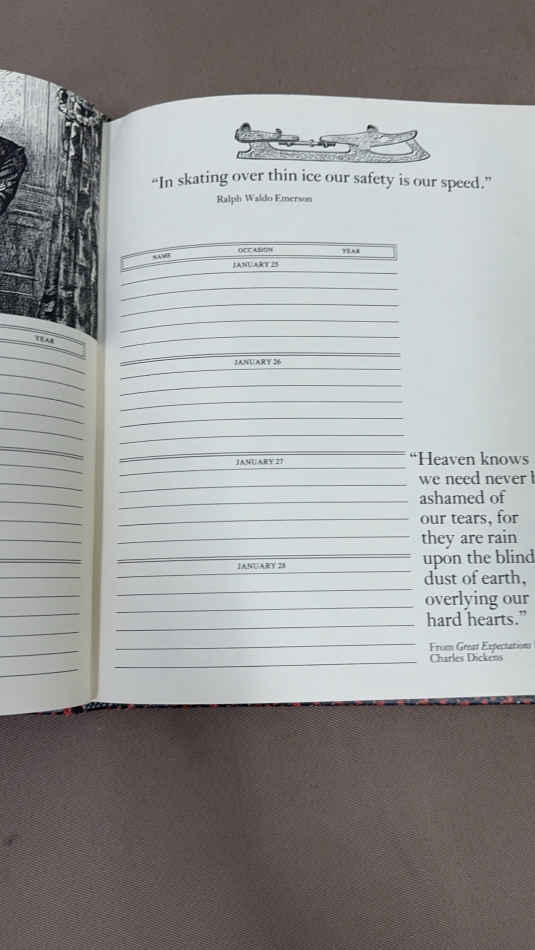 YEAR
“In skating over thin ice our safety is our speed.”
Ralph Waldo Emerson
NAME OCCASION YEAR
JANUARY 25
JANUARY 26
JANUARY 27
JANUARY 28
“Heaven knows
we need never
ashamed of
our tears, for
they are rain
upon the blind
dust of earth,
overlying our
hard hearts.”
From Great Expectations
Charles Dickens